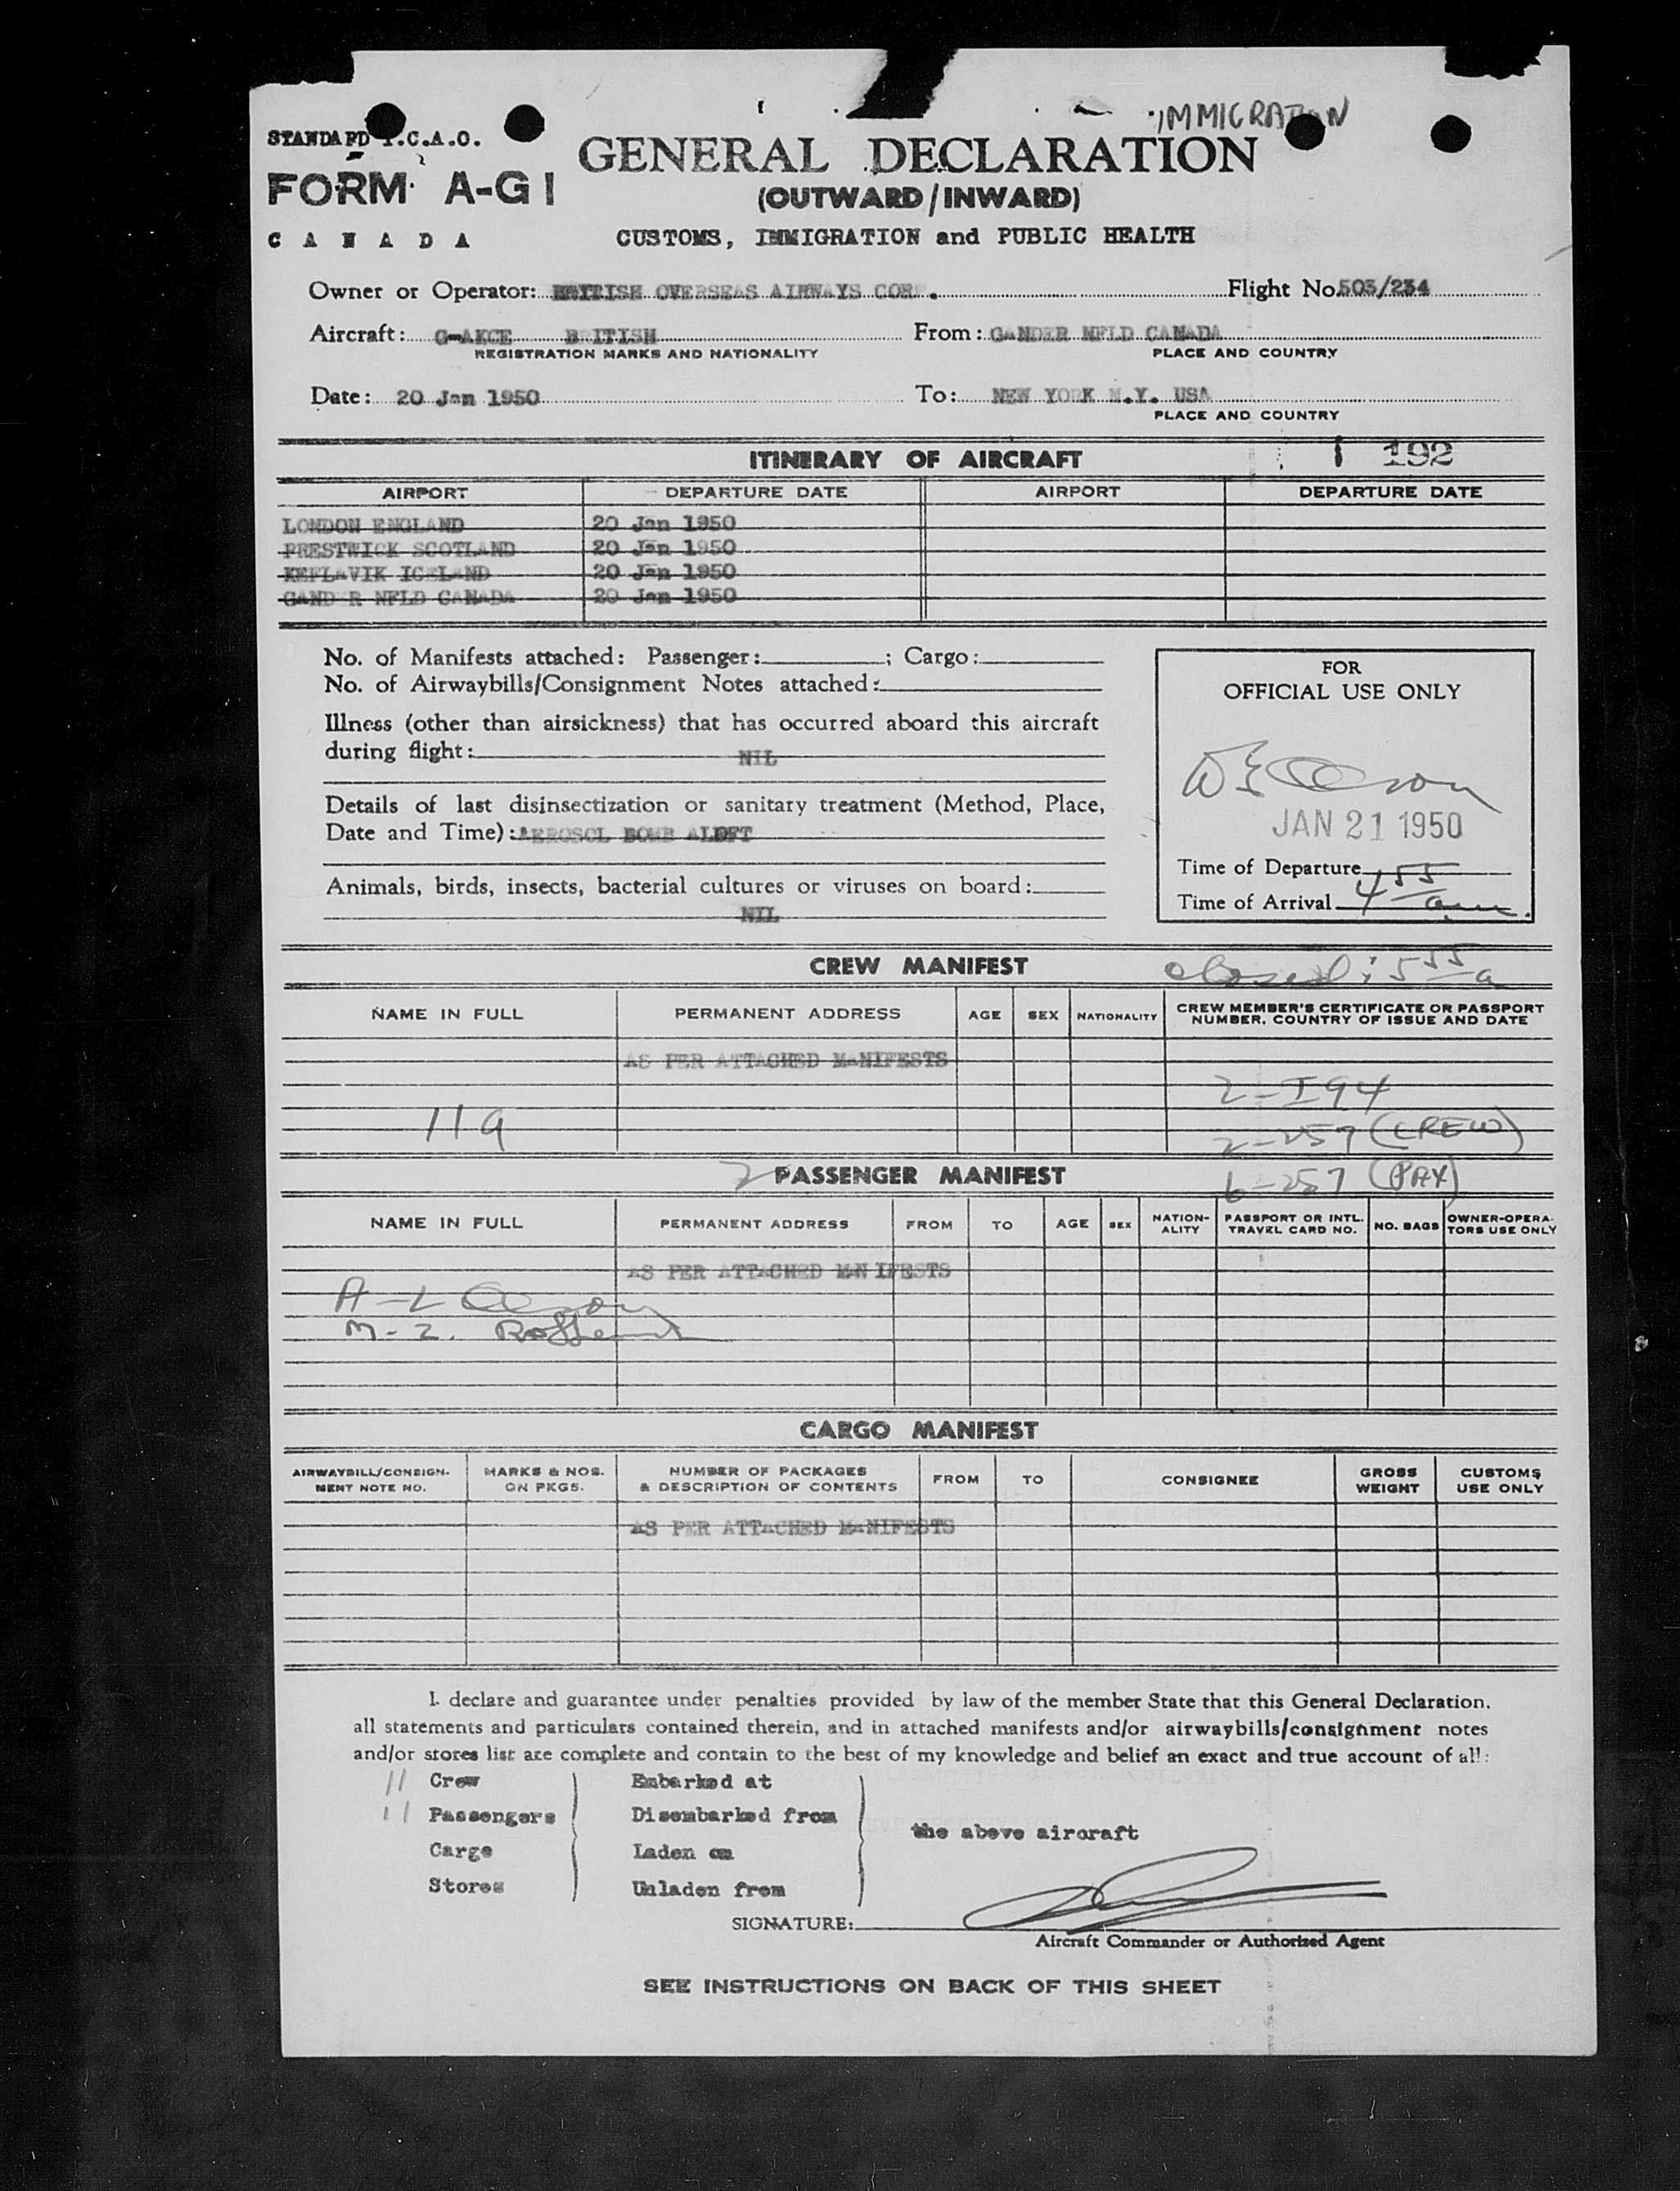 IMMIGRATION
STANDARD I.C.A.O.
GENERAL DECLARATION
FORM A-G1
(OUTWARD/INWARD)
CANADA
CUSTOMS, IMMIGRATION and PUBLIC HEALTH
Owner or Operator: BRITISH OVERSEAS AIRWAYS CORP. Flight No. 503/234
Aircraft: G-AKCE BRITISH From: GANDER NFLD CANADA
REGISTRATION MARKS AND NATIONALITY PLACE AND COUNTRY
Date: 20 Jan 1950 To: NEW YORK N.Y. USA
PLACE AND COUNTRY
ITINERARY OF AIRCRAFT 192
AIRPORT DEPARTURE DATE AIRPORT DEPARTURE DATE
LONDON ENGLAND 20 Jan 1950
PRESTWICK SCOTLAND 20 Jan 1950
KEFLAVIK ICELAND 20 Jan 1950
GANDER NFLD CANADA 20 Jan 1950
No. of Manifests attached: Passenger: ; Cargo:
No. of Airwaybills/Consignment Notes attached:
Illness (other than airsickness) that has occurred aboard this aircraft
during flight: NIL
Details of last disinsectization or sanitary treatment (Method, Place,
Date and Time): AEROSOL BOMB ALOFT
Animals, birds, insects, bacterial cultures or viruses on board:
NIL
FOR
OFFICIAL USE ONLY
JAN 21 1950
Time of Departure
Time of Arrival 4 55 am.
CREW MANIFEST closed: 5 55 a
NAME IN FULL PERMANENT ADDRESS AGE SEX NATIONALITY CREW MEMBER'S CERTIFICATE OR PASSPORT
NUMBER, COUNTRY OF ISSUE AND DATE
AS PER ATTACHED MANIFESTS
2-I94
2-257 (CREW)
PASSENGER MANIFEST 6-257 (PAX)
NAME IN FULL PERMANENT ADDRESS FROM TO AGE SEX NATION-
ALITY PASSPORT OR INTL.
TRAVEL CARD NO. NO. BAGS OWNER-OPERA-
TORS USE ONLY
AS PER ATTACHED MANIFESTS
CARGO MANIFEST
AIRWAYBILL/CONSIGN-
MENT NOTE NO. MARKS & NOS.
ON PKGS. NUMBER OF PACKAGES
& DESCRIPTION OF CONTENTS FROM TO CONSIGNEE GROSS
WEIGHT CUSTOMS
USE ONLY
AS PER ATTACHED MANIFESTS
I declare and guarantee under penalties provided by law of the member State that this General Declaration,
all statements and particulars contained therein, and in attached manifests and/or airwaybills/consignment notes
and/or stores list are complete and contain to the best of my knowledge and belief an exact and true account of all:
11 Crew Embarked at
11 Passengers Disembarked from
the above aircraft
Cargo Laden on
Stores Unladen from
SIGNATURE:
Aircraft Commander or Authorized Agent
SEE INSTRUCTIONS ON BACK OF THIS SHEET